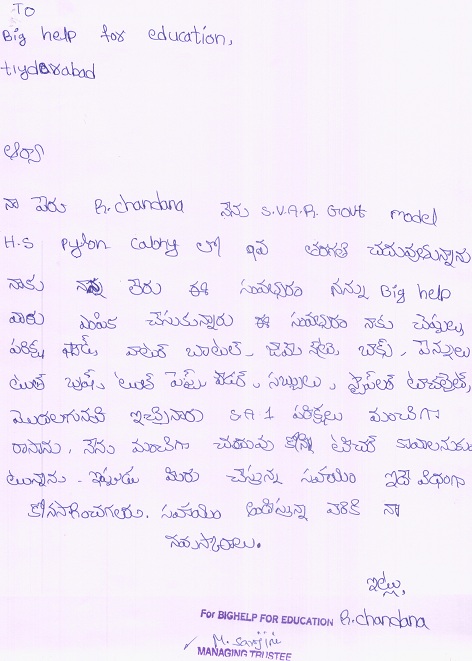 TO
Big help for education,
Hyderabad
ఆర్యా
నా పేరు R. chandana నేను S.V.A.R. Govt model
H.S Pylon Colony లో 9వ తరగతి చదువుతున్నాను
నాకు నాన్న లేరు ఈ సంవత్సరం నన్ను Big help
వారు ఎంపిక చేసుకున్నారు ఈ సంవత్సరం నాకు చెప్పులు,
పరీక్ష ప్యాడ్, వాటర్ బాటుల్, బాక్స్, పెన్నులు
టూత్ బ్రష్, టూత్ పేస్ట్, పౌడర్, సబ్బులు,
మొదలగునవి ఇచ్చినారు SA 1 పరీక్షలు మంచిగా
రాసాను, నేను మంచిగా చదువు కొని టీచర్ కావాలనుకుం
టున్నాను. ఇప్పుడు మీరు చేస్తున్న సహాయం ఇదే విధంగా
కొనసాగించగలరు. సహాయం అందిస్తున్న వారికి నా
నమస్కారాలు.
ఇట్లు,
R. chandana
For BIGHELP FOR EDUCATION
M. Sarojini
MANAGING TRUSTEE